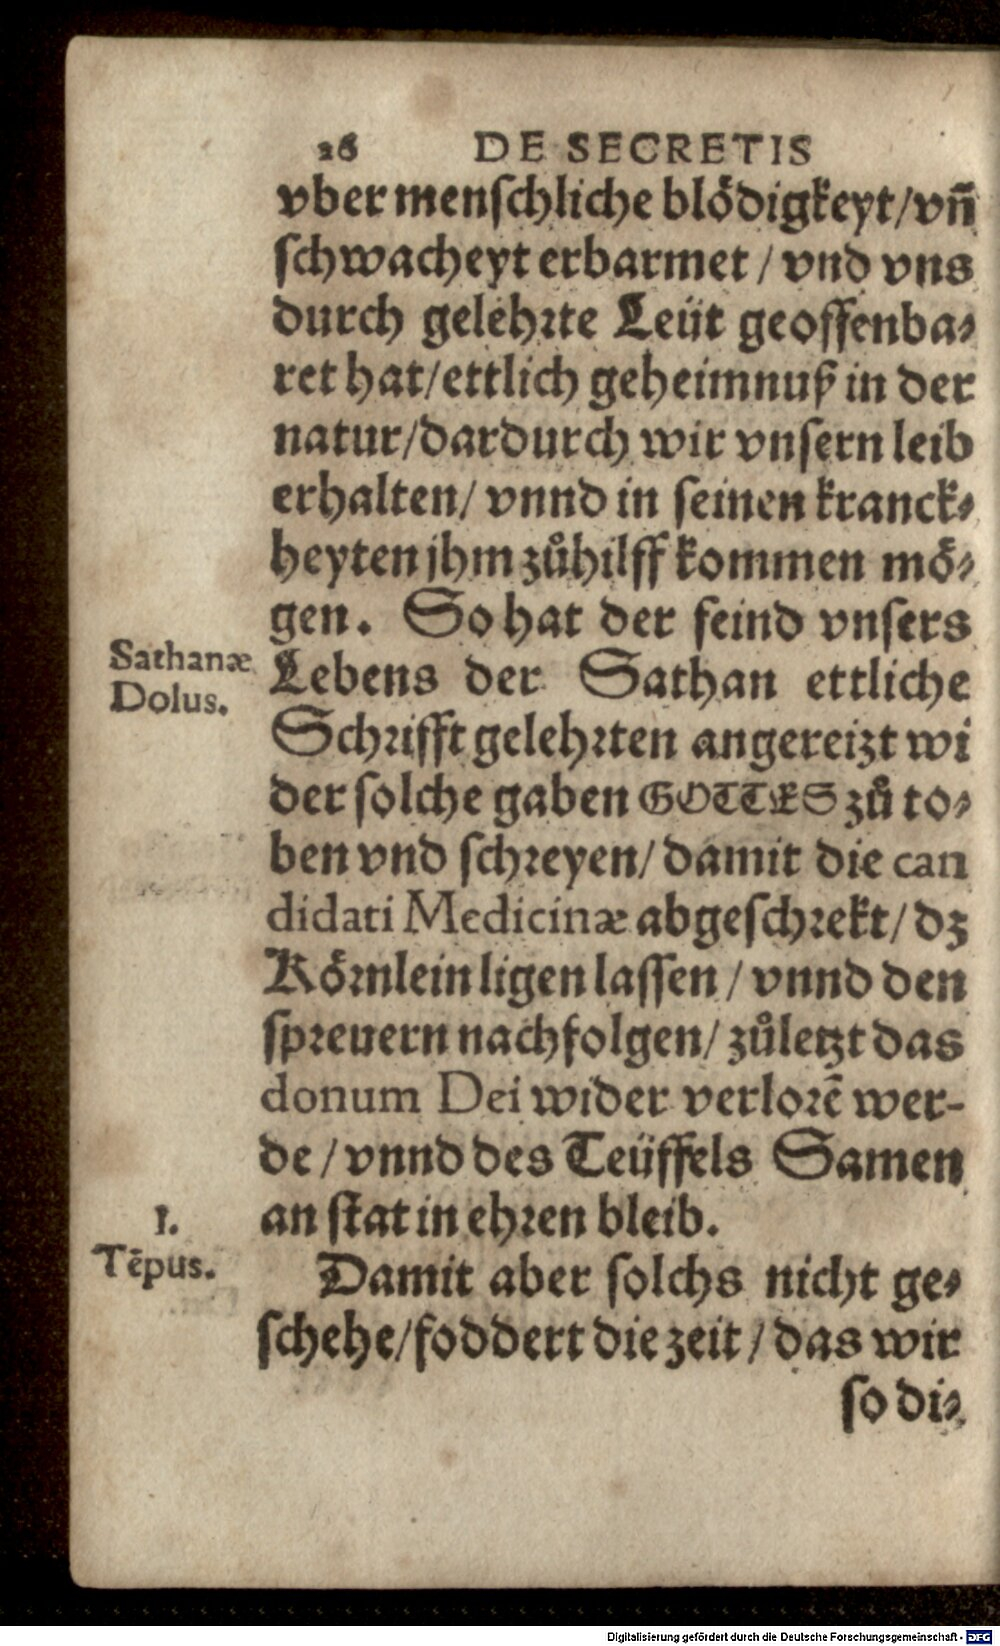 26 DE SECRETIS
vber menschliche blödigkeyt/vñ
schwacheyt erbarmet / vnd vns
durch gelehrte Leüt geoffenba-
ret hat/ettlich geheimnuß in der
natur/dardurch wir vnsern leib
erhalten/ vnnd in seinen kranck-
heyten jhm zůhilff kommen mö-
gen. So hat der feind vnsers
Sathanæ
Dolus.
Lebens der Sathan ettliche
Schrifft gelehrten angereizt wi
der solche gaben GOTTES zů to-
ben vnd schreyen/ damit die can
didati Medicinæ abgeschrekt/ dz
Körnlein ligen lassen / vnnd den
spreuern nachfolgen/ zůletzt das
donum Dei wider verlorē wer-
de / vnnd des Teüffels Samen
an stat in ehren bleib.
I.
Tēpus.
Damit aber solchs nicht ge-
schehe/foddert die zeit / das wir
so di-
Digitalisierung gefördert durch die Deutsche Forschungsgemeinschaft - DFG